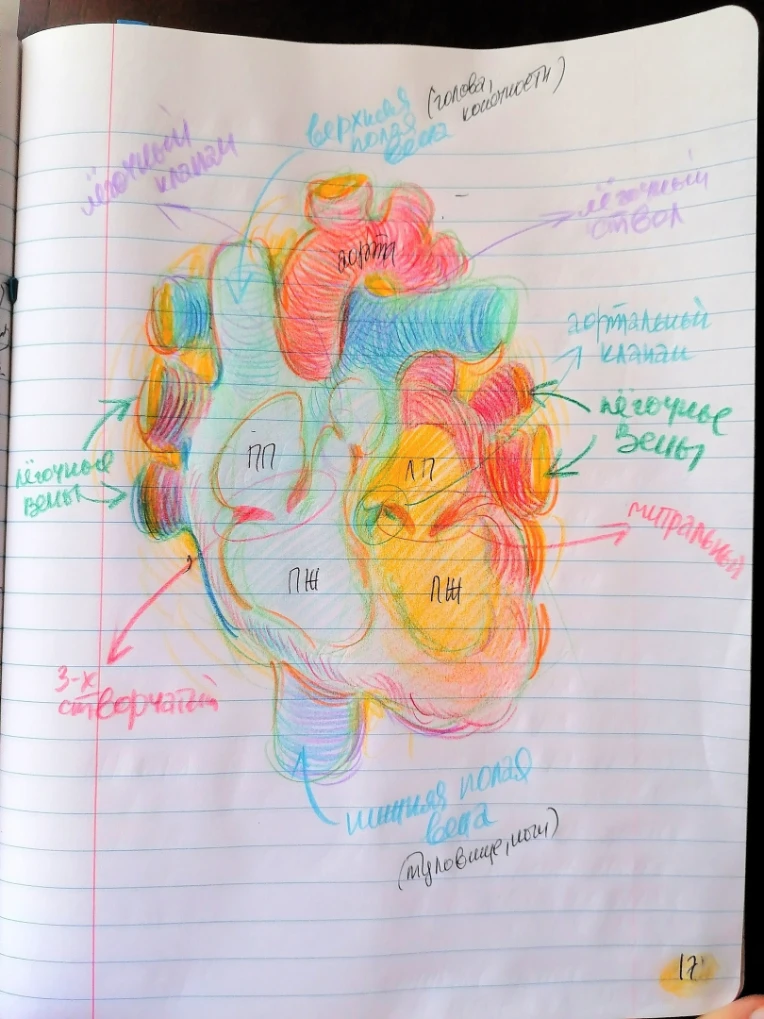 верхняя
полая
вена
(голова,
конечности)
лёгочный
клапан
лёгочный
ствол
аорта
аортальный
клапан
лёгочные
вены
ПП
ЛП
лёгочные
вены
митральный
ПЖ
ЛЖ
3-х
створчатый
нижняя полая
вена
(туловище, ноги)
17